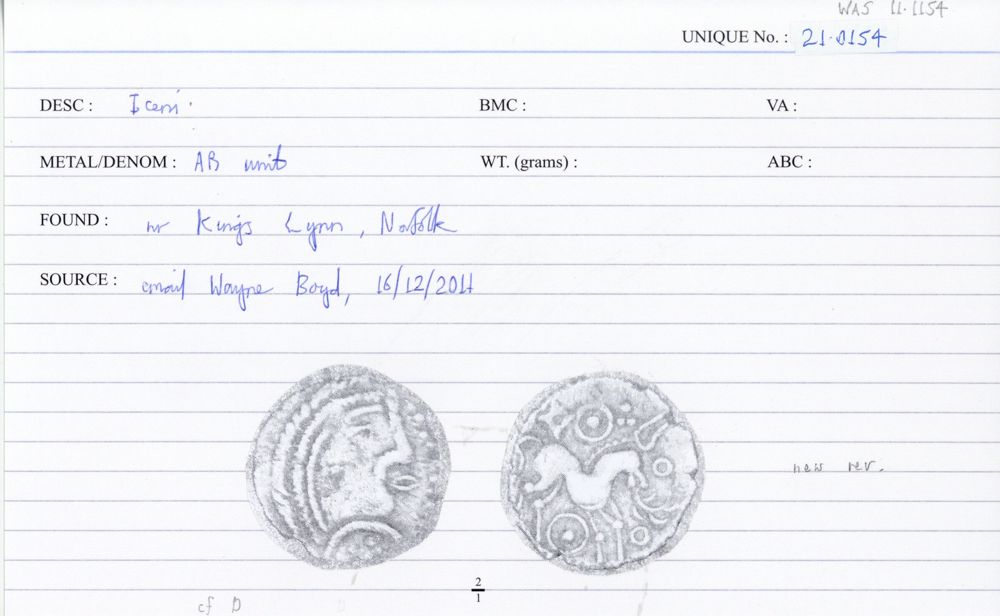 WAS 11.1154
UNIQUE No. : 21.0154
DESC : Iceni. BMC : VA :
METAL/DENOM : AR unit WT. (grams) : ABC :
FOUND : nr Kings Lynn, Norfolk
SOURCE : email Wayne Boyd, 16/12/2011
new rev.
2
1
cf D